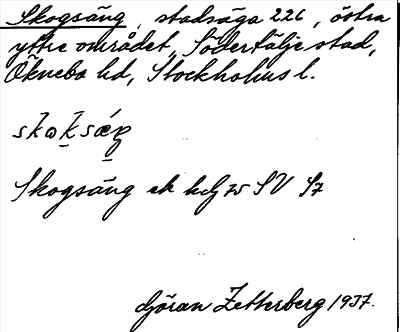 Skogsäng, stadsäga 226, östra
yttre området, Södertälje stad,
Öknebo hd, Stockholms l.
Skogsäng ek kbl 75 SV S7
Göran Zetterberg 1937.